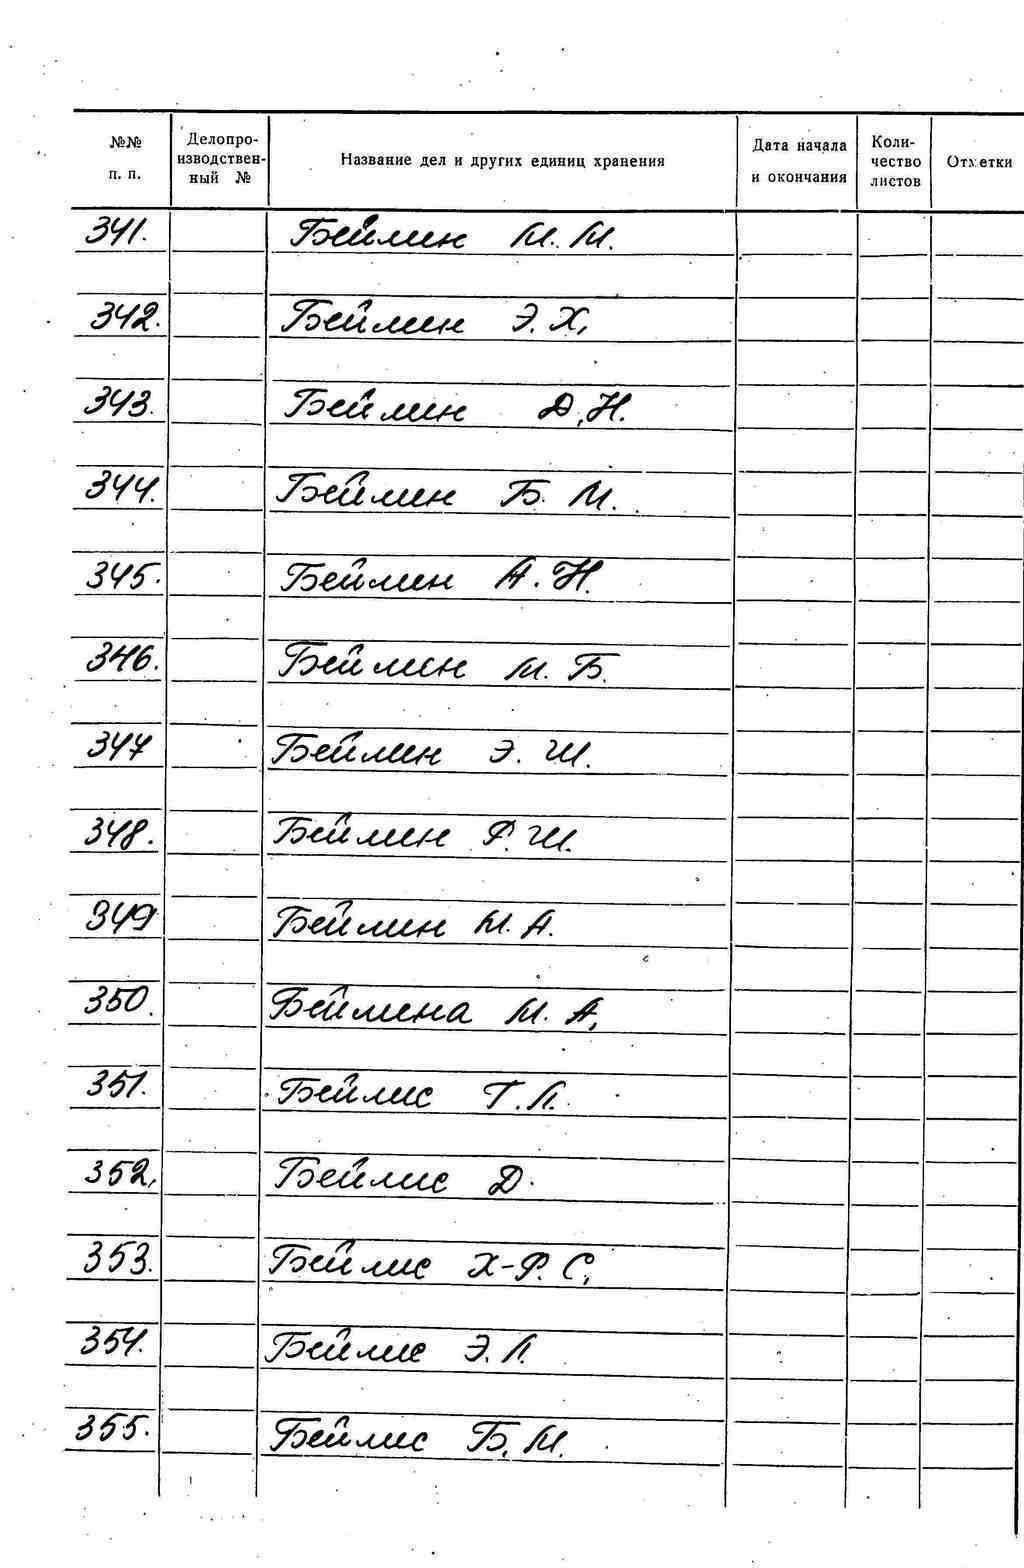 №№ п. п. Делопроизводственный № Название дел и других единиц хранения Дата начала и окончания Количество листов Отметки
341. Беймин М. М.
342. Беймин Э. Х.
343. Беймин Д. Н.
344. Беймин Б. М.
345. Беймин А. Н.
346. Беймин М. Б.
347 Беймин Э. Ш.
348. Беймин Р. Ш.
349 Беймин М. А.
350. Беймина М. А.
351. Бейлис Г. Л.
352. Бейлис Д.
353. Бейлис Х-Р. С.
354. Бейлис Э. Л.
355. Бейлис Б. М.